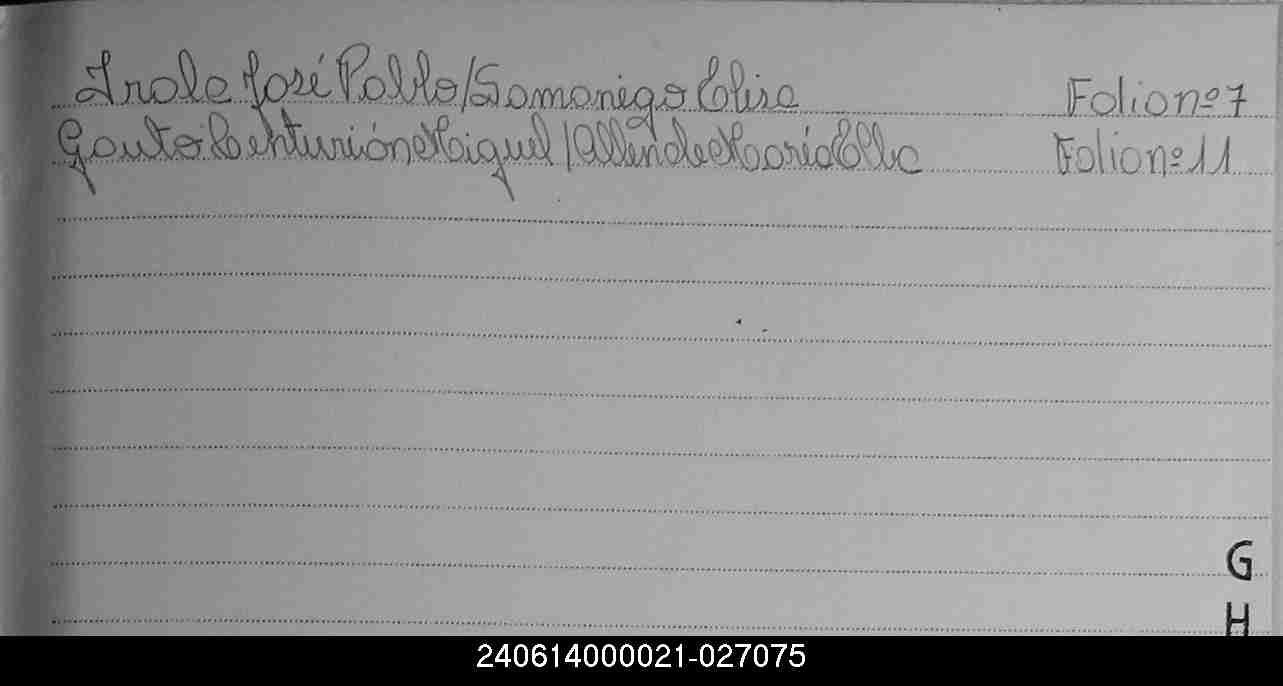 Irala José Pablo/Samaniego Elisa Folio nº 7
Gauto Centurión Miguel/Allende María Elba Folio nº 11
G
H
240614000021-027075